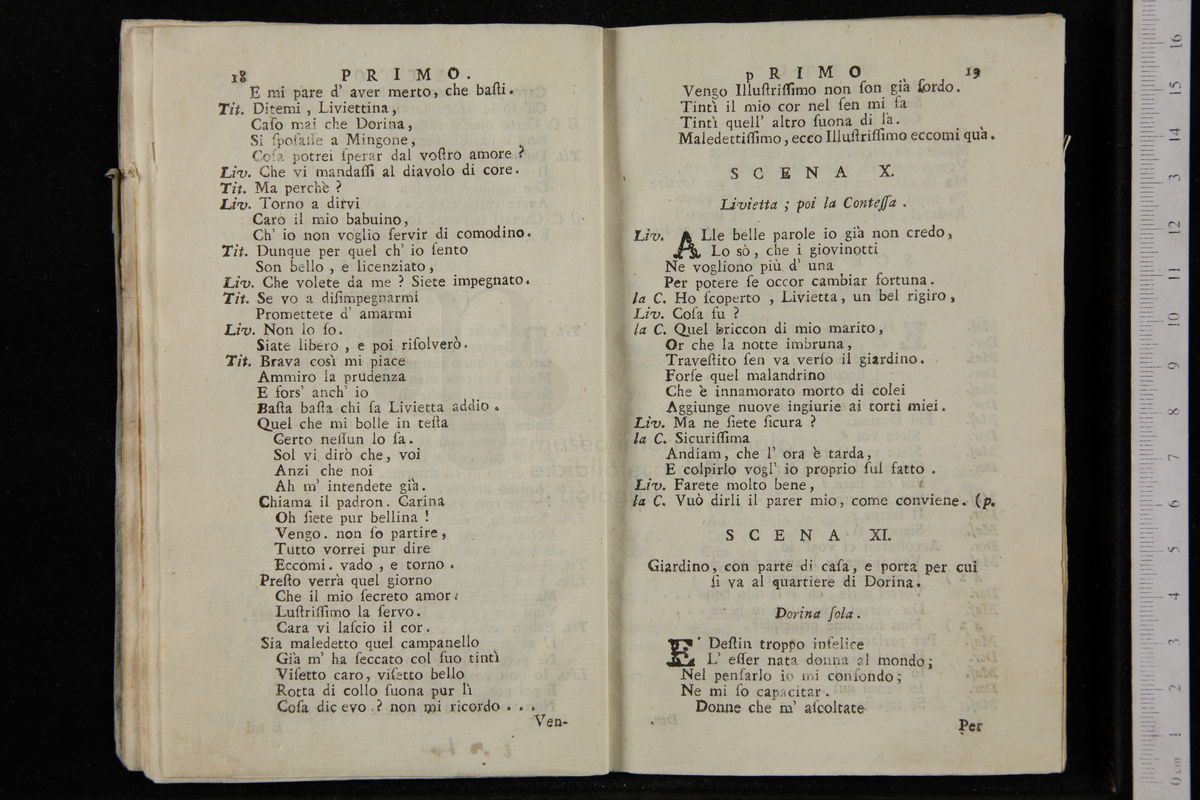 18 PRIMO.
E mi pare d' aver merto, che baſti.
Tit. Ditemi , Liviettina,
Caſo mai che Dorina,
Si ſpoſaſſe a Mingone,
Coſa potrei ſperar dal voſtro amore ?
Liv. Che vi mandaſſi al diavolo di core.
Tit. Ma perchè ?
Liv. Torno a dirvi
Caro il mio babuino,
Ch' io non voglio ſervir di comodino.
Tit. Dunque per quel ch' io ſento
Son bello , e licenziato,
Liv. Che volete da me ? Siete impegnato.
Tit. Se vo a diſimpegnarmi
Promettete d' amarmi
Liv. Non lo ſo.
Siate libero , e poi riſolverò.
Tit. Brava così mi piace
Ammiro la prudenza
E fors' anch' io
Baſta baſta chi ſa Livietta addio .
Quel che mi bolle in teſta
Certo neſſun lo ſa.
Sol vi dirò che, voi
Anzi che noi
Ah m' intendete già.
Chiama il padron. Carina
Oh ſiete pur bellina !
Vengo. non ſo partire,
Tutto vorrei pur dire
Eccomi. vado , e torno .
Preſto verrà quel giorno
Che il mio ſecreto amor:
Luſtriſſimo la ſervo.
Cara vi laſcio il cor.
Sia maledetto quel campanello
Già m' ha ſeccato col ſuo tintì
Viſetto caro, viſetto bello
Rotta di collo ſuona pur lì
Coſa dicevo ? non mi ricordo . . .
Ven-
pRIMO 19
Vengo Illuſtriſſimo non ſon già ſordo.
Tintì il mio cor nel ſen mi fa
Tintì quell' altro ſuona di là.
Maledettiſſimo, ecco Illuſtriſſimo eccomi quà.
SCENA X.
Livietta ; poi la Conteſſa .
Liv. ALle belle parole io già non credo,
Lo sò, che i giovinotti
Ne vogliono più d' una
Per potere ſe occor cambiar fortuna.
la C. Ho ſcoperto , Livietta, un bel rigiro,
Liv. Coſa fu ?
la C. Quel briccon di mio marito,
Or che la notte imbruna,
Traveſtito ſen va verſo il giardino.
Forſe quel malandrino
Che è innamorato morto di colei
Aggiunge nuove ingiurie ai torti miei.
Liv. Ma ne ſiete ſicura ?
la C. Sicuriſſima
Andiam, che l' ora è tarda,
E colpirlo vogl' io proprio ſul fatto .
Liv. Farete molto bene,
la C. Vuò dirli il parer mio, come conviene. (p.
SCENA XI.
Giardino, con parte di caſa, e porta per cui
ſi va al quartiere di Dorina.
Dorina ſola.
E' Deſtin troppo infelice
L' eſſer nata donna al mondo;
Nel penſarlo io mi confondo;
Ne mi ſo capacitar.
Donne che m' aſcoltate
Per